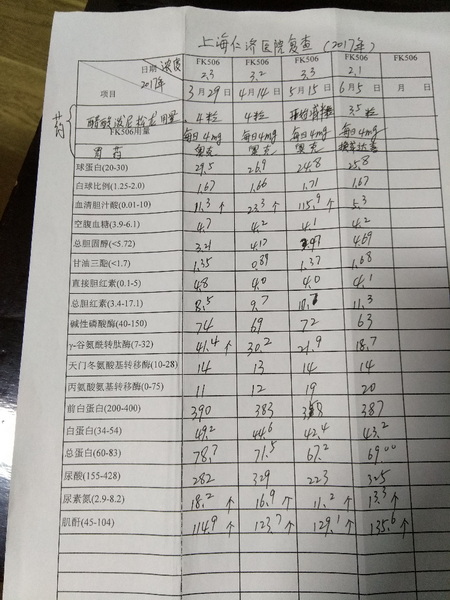 上海仁济医院复查（2017年）
日期 浓度 FK506 FK506 FK506 FK506 FK506
2.3 3.2 3.3 2.1
项目 2017年 3月29日 4月14日 5月15日 6月5日 月 日
药 醋酸泼尼松龙用量 4粒 4粒 3.5粒
FK506用量 每日4mg 每日4mg 每日4mg 每日4mg
胃药 奥克 奥克 奥克
球蛋白(20-30) 29.5 26.9 24.8 25.8
白球比例(1.25-2.0) 1.67 1.66 1.71 1.67
血清胆汁酸(0.01-10) 11.3↑ 23.3↑ 115.9↑ 5.3
空腹血糖(3.9-6.1) 4.7 4.2 4.1 4.2
总胆固醇(<5.72) 3.21 4.12 3.97 4.69
甘油三酯(<1.7) 1.35 0.89 1.37 1.68
直接胆红素(0.1-5) 4.8 4.0 4.0 4.1
总胆红素(3.4-17.1) 8.5 9.7 11.3
碱性磷酸酶(40-150) 74 69 72 63
γ-谷氨酰转肽酶(7-32) 41.4↑ 30.2 21.9 18.7
天门冬氨酸基转移酶(10-28) 14 13 14 14
丙氨酸氨基转移酶(0-75) 11 12 19 20
前白蛋白(200-400) 390 383 387
白蛋白(34-54) 49.2 44.6 42.4 43.2
总蛋白(60-83) 78.7 71.5 67.2 69.00
尿酸(155-428) 282 329 223 325
尿素氮(2.9-8.2) 18.2↑ 16.9↑ 11.2↑ 13.3↑
肌酐(45-104) 114.9↑ 123.7↑ 129.1↑ 135.6↑